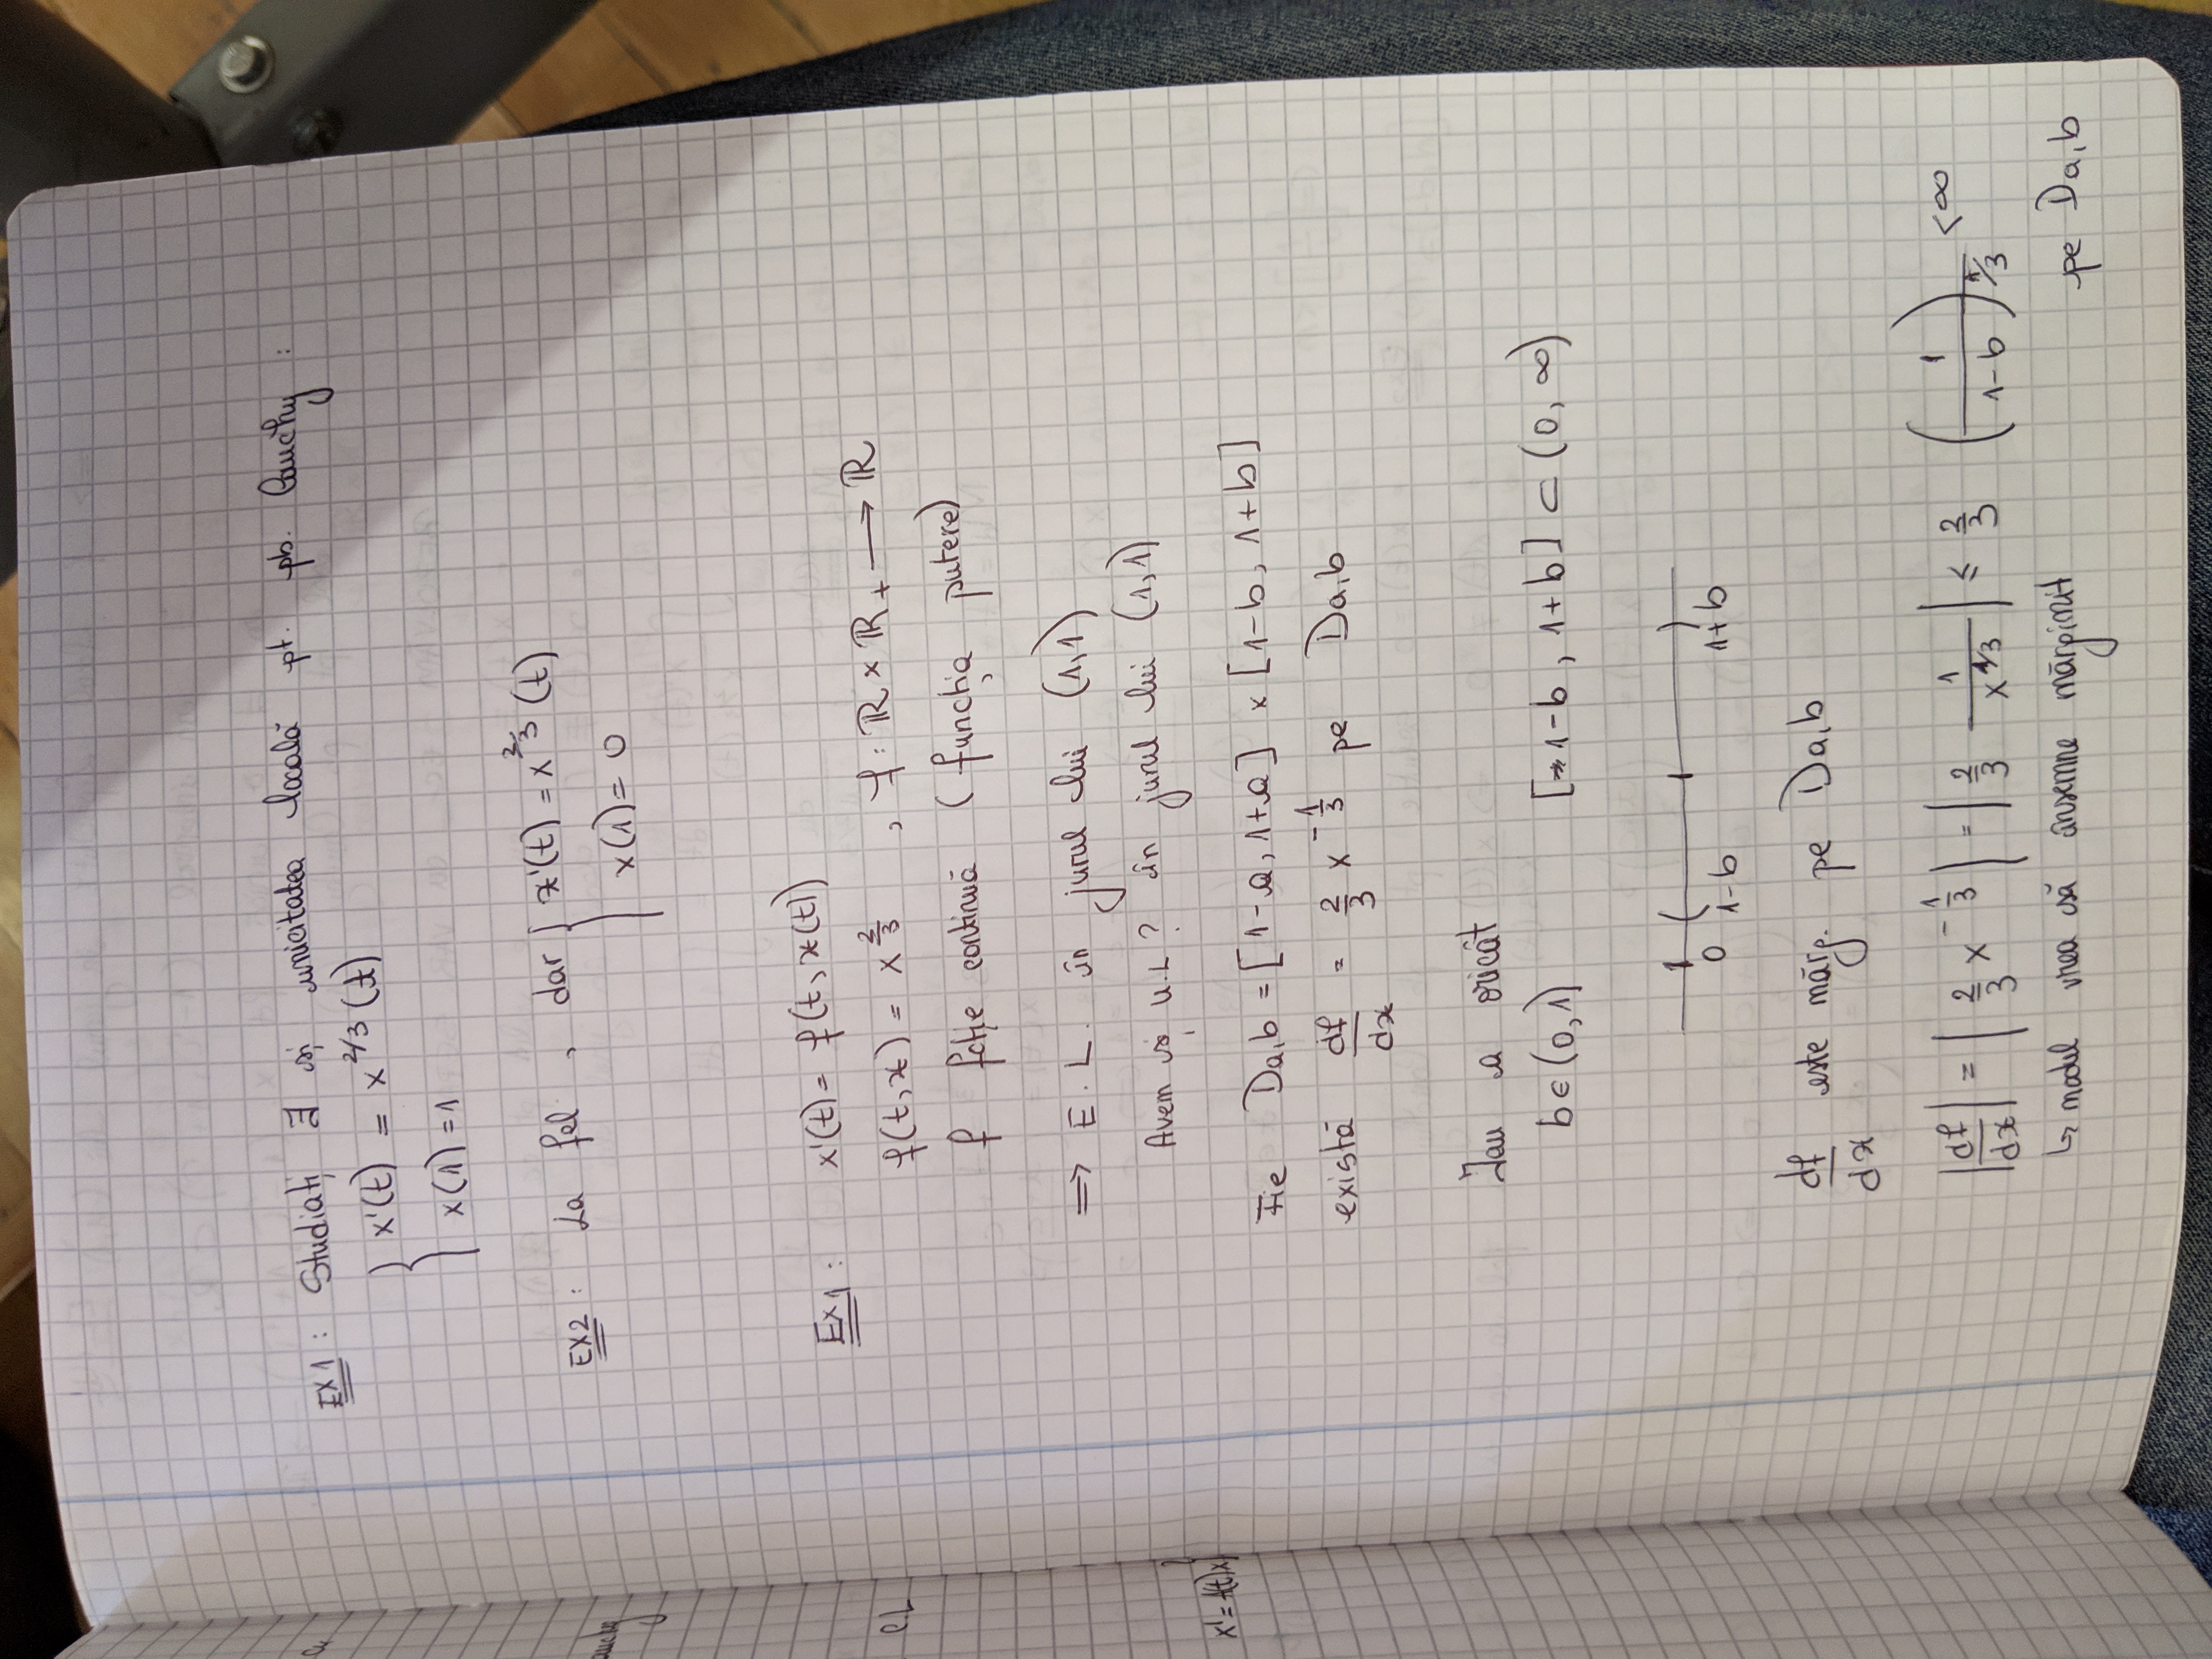 EX1 : Studiați ∃ și unicitatea locală pt. pb. Cauchy :
{ x'(t) = x^{2/3}(t)
x(1) = 1
EX2 : La fel , dar { x'(t) = x^{2/3}(t)
x(1) = 0
Ex1 : x'(t) = f(t, x(t))
f(t,x) = x^{2/3} , f : ℝ × ℝ₊ ⟶ ℝ
f fcție continuă (funcția putere)
⟹ E. L. în jurul lui (1,1)
Avem și U.L? în jurul lui (1,1)
Fie Da,b = [1-a, 1+a] × [1-b, 1+b]
există df/dx = 2/3 x^{-1/3} pe Da,b
Iau a oricât
b ∈ (0,1) [1-b, 1+b] ⊂ (0, ∞)
0 1-b 1+b
df/dx este mărg. pe Da,b
|df/dx| = |2/3 x^{-1/3}| = |2/3 1/x^{1/3}| ≤ 2/3 (1/1-b)^{1/3} < ∞
↳ modul vrea să însemne mărginit pe Da,b
auchy
e.L
x' = f(t)x